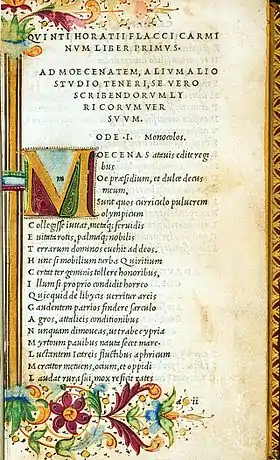 QVINTI HORATII FLACCI CARMI
NVM LIBER PRIMVS.
AD MOECENATEM, ALIVM ALIO
STVDIO TENERI, SE VERO
SCRIBENDORVM LY
RICORVM VER
SVVM.
ODE .I. Monocolos.
MOECENAS atauis edite regi
bus
Oe præsidium, et dulce decus
meum,
Sunt quos curriculo puluerem
olympicum
C ollegisse iuuat, metaq; feruidis
E uitata rotis, palmaq; nobilis
T errarum dominos euehit ad deos.
H unc si mobilium turba Quiritium
C ertat tergeminis tollere honoribus,
I llum si proprio condidit horreo
Q uicquid de libycis uerritur areis
G audentem patrios findere sarculo
A gros, attalicis conditionibus
N unquam dimoueas, ut trabe cypria
M yrtoum pauidus nauta secet mare.
L uctantem Icariis fluctibus aphricum
M ercator metuens, ocium, et oppidi
L audat rura sui, mox reficit rates
a ii